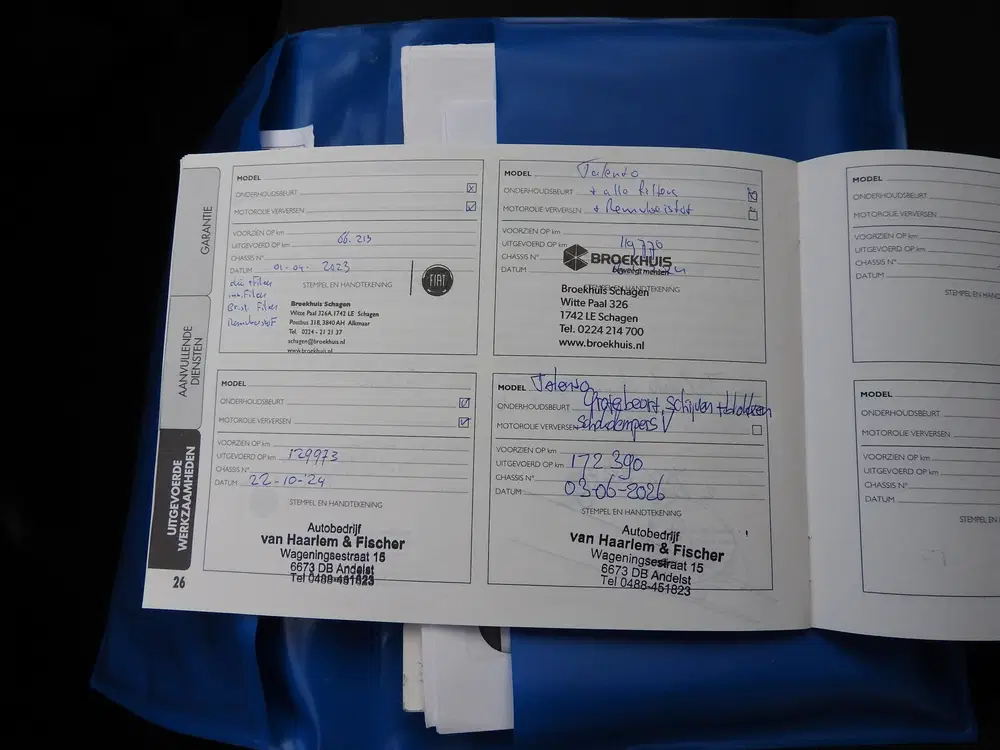 GARANTIE
AANVULLENDE
DIENSTEN
UITGEVOERDE
WERKZAAMHEDEN
26
MODEL
ONDERHOUDSBEURT
MOTOROLIE VERVERSEN
VOORZIEN OP km
UITGEVOERD OP km 66.213
CHASSIS N°
DATUM 01-04- 2023
STEMPEL EN HANDTEKENING
FIAT
Broekhuis Schagen
Witte Paal 326A, 1742 LE Schagen
Postbus 318, 3840 AH Alkmaar
Tel. 0224 - 21 21 37
schagen@broekhuis.nl
www.broekhuis.nl
MODEL Talento
ONDERHOUDSBEURT + alle filters
MOTOROLIE VERVERSEN + Remvloeistof
VOORZIEN OP km
UITGEVOERD OP km 119.776
CHASSIS N°
DATUM
BROEKHUIS
beweegt mensen
STEMPEL EN HANDTEKENING
Broekhuis Schagen
Witte Paal 326
1742 LE Schagen
Tel. 0224 214 700
www.broekhuis.nl
MODEL
ONDERHOUDSBEURT
MOTOROLIE VERVERSEN
VOORZIEN OP km
UITGEVOERD OP km 129973
CHASSIS N°
DATUM 22-10-'24
STEMPEL EN HANDTEKENING
Autobedrijf
van Haarlem & Fischer
Wageningsestraat 15
6673 DB Andelst
Tel 0488-451823
MODEL Talento
ONDERHOUDSBEURT Grote beurt, schijven + blokken
MOTOROLIE VERVERSEN schokdempers V
VOORZIEN OP km
UITGEVOERD OP km 172.390
CHASSIS N°
DATUM 03-06-2026
STEMPEL EN HANDTEKENING
Autobedrijf
van Haarlem & Fischer
Wageningsestraat 15
6673 DB Andelst
Tel 0488-451823
MODEL
ONDERHOUDSBEURT
MOTOROLIE VERVERSEN
VOORZIEN OP km
UITGEVOERD OP km
CHASSIS N°
DATUM
STEMPEL EN HAN
MODEL
ONDERHOUDSBEURT
MOTOROLIE VERVERSEN
VOORZIEN OP km
UITGEVOERD OP km
CHASSIS N°
DATUM
STEMPEL EN